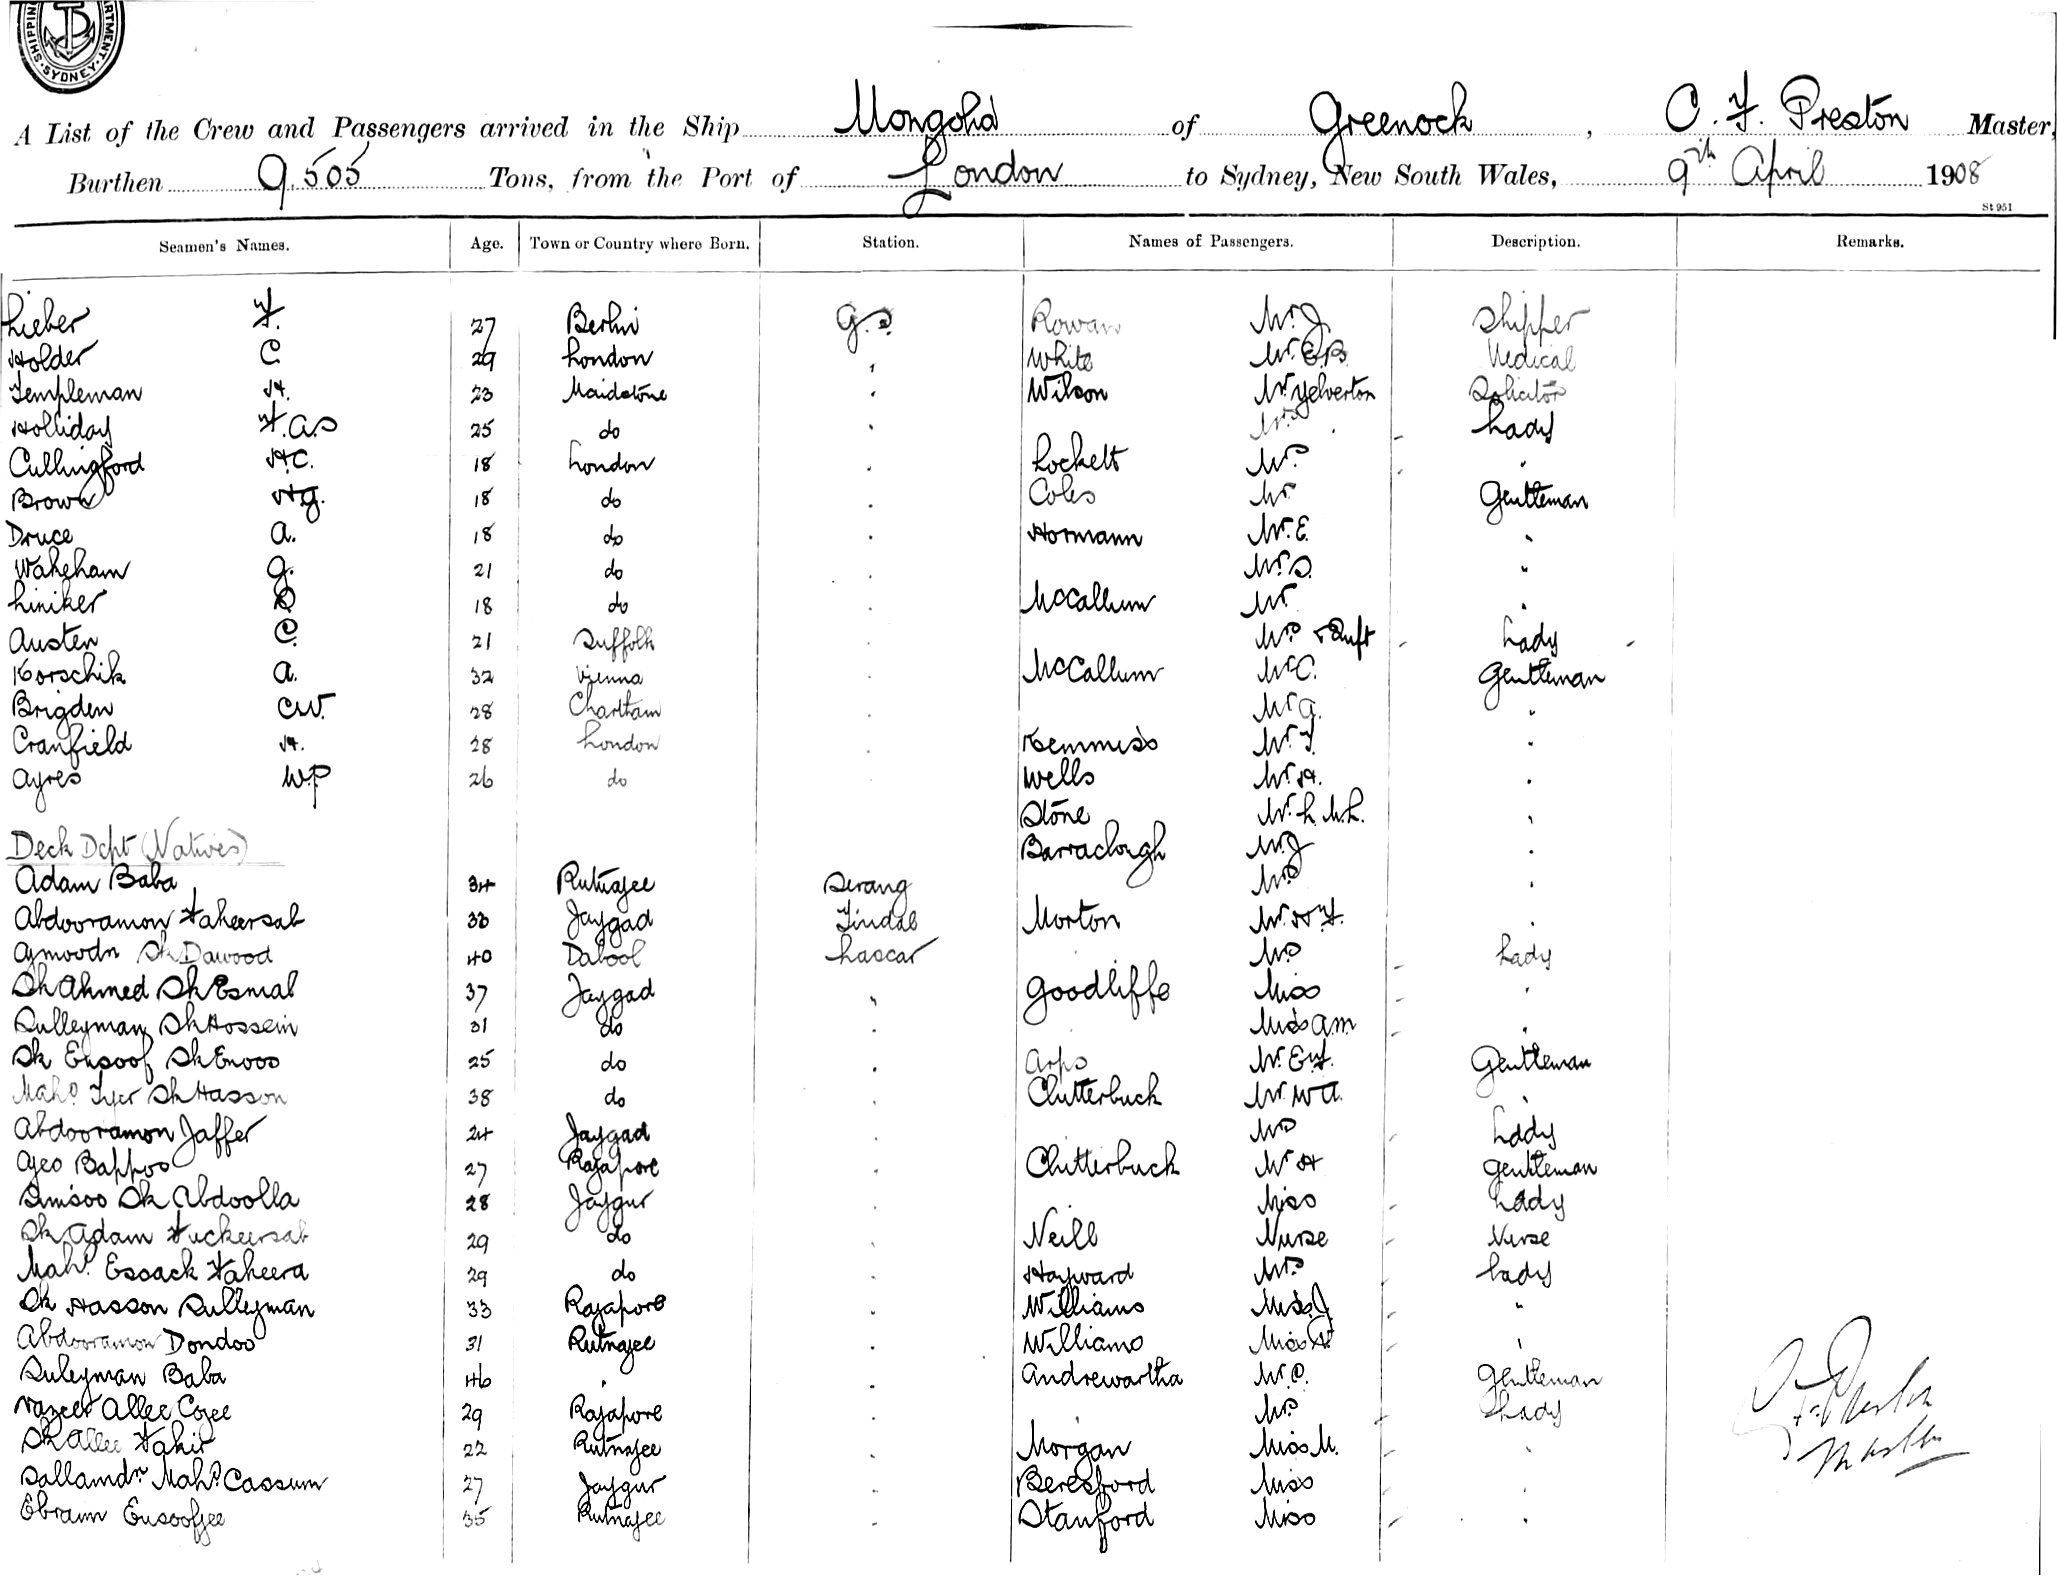 SHIPPING DEPARTMENT. SYDNEY.
A List of the Crew and Passengers arrived in the Ship Mongolia of Greenock, C. F. Preston Master,
Burthen 9,505 Tons, from the Port of London to Sydney, New South Wales, 9th April 1908
St 951
Seamen's Names. Age. Town or Country where Born. Station. Names of Passengers. Description. Remarks.
Lieber F. 27 Berlin G.S. Rowan Mr. J. Shipper
Holder C 29 London " White Mr. E.B. Medical
Templeman H. 23 Maidstone " Wilson Mr Yelverton Solicitor
Holliday F.A.S 25 do " Mrs " Lady
Cullingford H.C. 18 London " Lockett Mrs "
Brown H.G. 18 do " Coles Mr Gentleman
Druce A. 18 do " Hormann Mr. E. "
Wakeham G. 21 do " Mr. S. "
Liniker 18 do " McCallum Mr "
Austen C. 21 Suffolk " Mrs & Inft Lady
Korschik A. 32 Vienna " McCallum Mr C. Gentleman
Brigden C.W. 28 Chartham " Mr A. "
Cranfield H. 28 London " Kemmiss Mr. T. "
Ayres W.P 26 do " Wells Mr. H. "
Stone Mr. L. M. L. "
Deck Dept (Natives) Barraclough Mr. J "
Adam Baba 34 Rutnagee Serang Mrs "
Abdooramon Faheersab 33 Jaygad Tindal Morton Mr. H.F. "
Aymoodn Sk Dawood 40 Dabool Lascar " Mrs Lady
Sk Ahmed Sk Esmal 37 Jaygad " Goodliffe Miss "
Sulleyman Sk Hossein 31 do " " Miss A.M. "
Sk Eusoof Sk Enoos 25 do " Arps Mr. E.F. Gentleman
Mahd. Sk Hasson 38 do " Clutterbuck Mr. W A. "
Abdooramon Jaffer 24 Jaygad " Mrs Lady
Ayeo Bappoo 27 Rajapore " Clutterbuck Mr H Gentleman
Simsoo Sk Abdoolla 28 Jaygur " " Miss Lady
Sk Adam Fuckeersab 29 do " Neill Nurse Nurse
Mahd. Essack Faheera 29 do " Hayward Mrs Lady
Sk Hasson Sulleyman 33 Rajapore " Williams Miss J "
Abdooramon Dondoo 31 Rutnagee " Williams Miss A "
Suleyman Baba 46 " " Andrewartha Mr. C. Gentleman
Vazeer Allee Cozee 29 Rajapore " " Mrs Lady
Sk Allee Fakir 22 Rutnagee " Morgan Miss M. "
Sallamdn Mahd. Cassum 27 Jaygur " Beresford Miss "
Ebraim Eusoofjee 35 Rutnagee " Stanford Miss "
C F Preston
Master